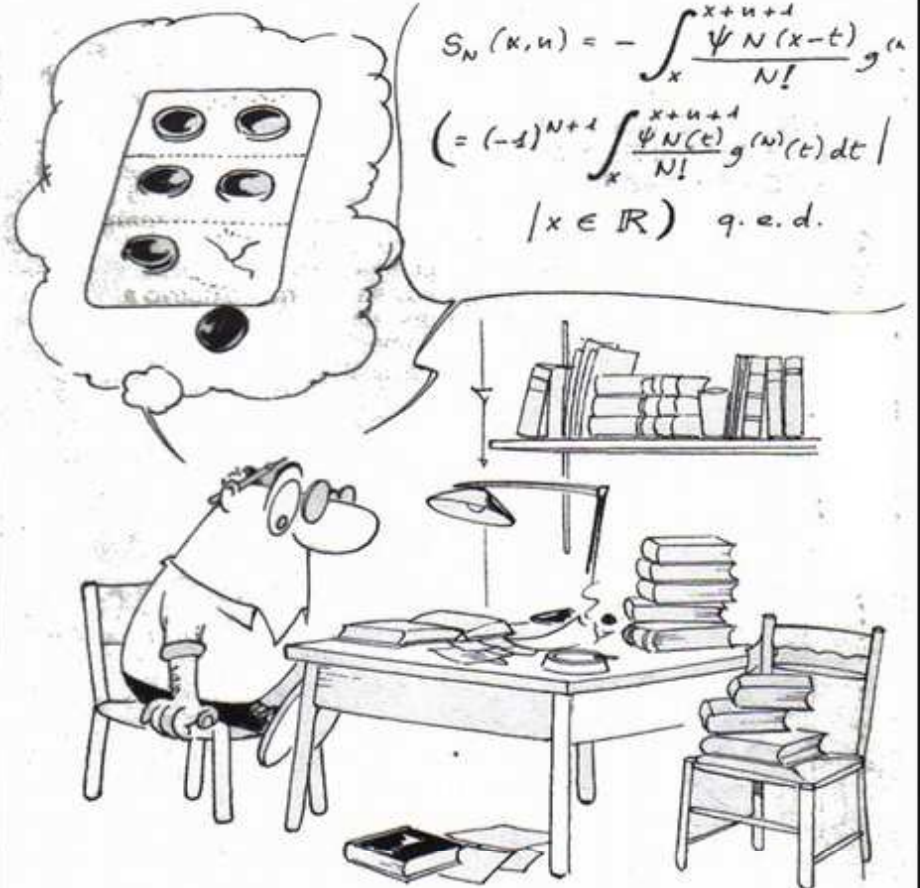 S_N (x,n) = - ∫_x^{x+n+1} \frac{ψ N (x-t)}{N!} g^{(
(= (-1)^{N+1} ∫_x^{x+n+1} \frac{ψ N(t)}{N!} g^{(N)}(t) dt |
| x ∈ ℝ) q.e.d.